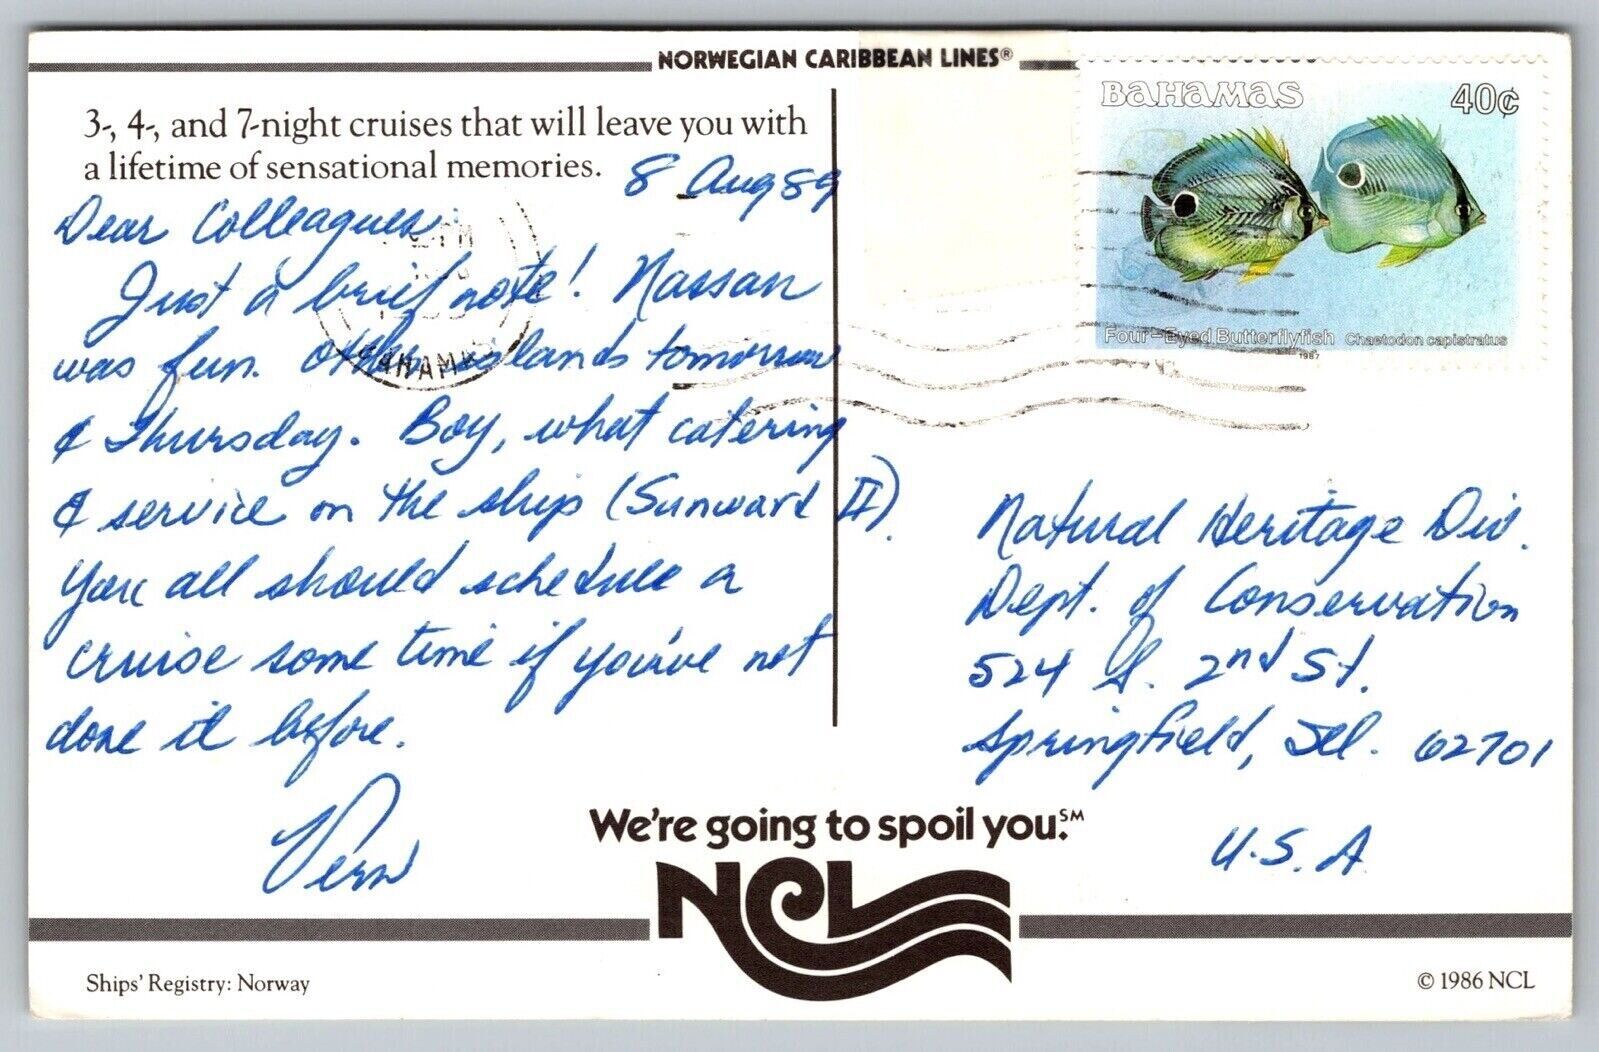 NORWEGIAN CARIBBEAN LINES®
3-, 4-, and 7-night cruises that will leave you with
a lifetime of sensational memories.
8 Aug 89
Dear Colleagues:
Just a brief note! Nassau
was fun. Other islands tomorrow
& Thursday. Boy, what catering
& service on the ship (Sunward II).
You all should schedule a
cruise some time if you've not
done it before.
Vern
BAHAMAS 40¢
Four-Eyed Butterflyfish Chaetodon capistratus
1987
BAHAMAS
Natural Heritage Div.
Dept. of Conservation
524 S. 2nd St.
Springfield, Ill. 62701
U.S.A
We're going to spoil you.℠
NCL
Ships' Registry: Norway
© 1986 NCL